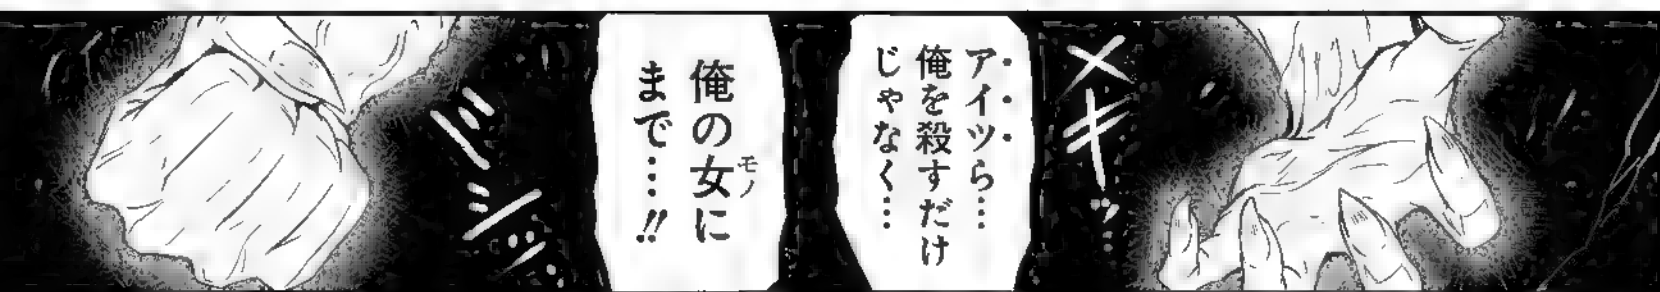 メキッ
アイツら…
俺を殺すだけ
じゃなく…
俺の女に
モノ
まで…!!
ドシッ